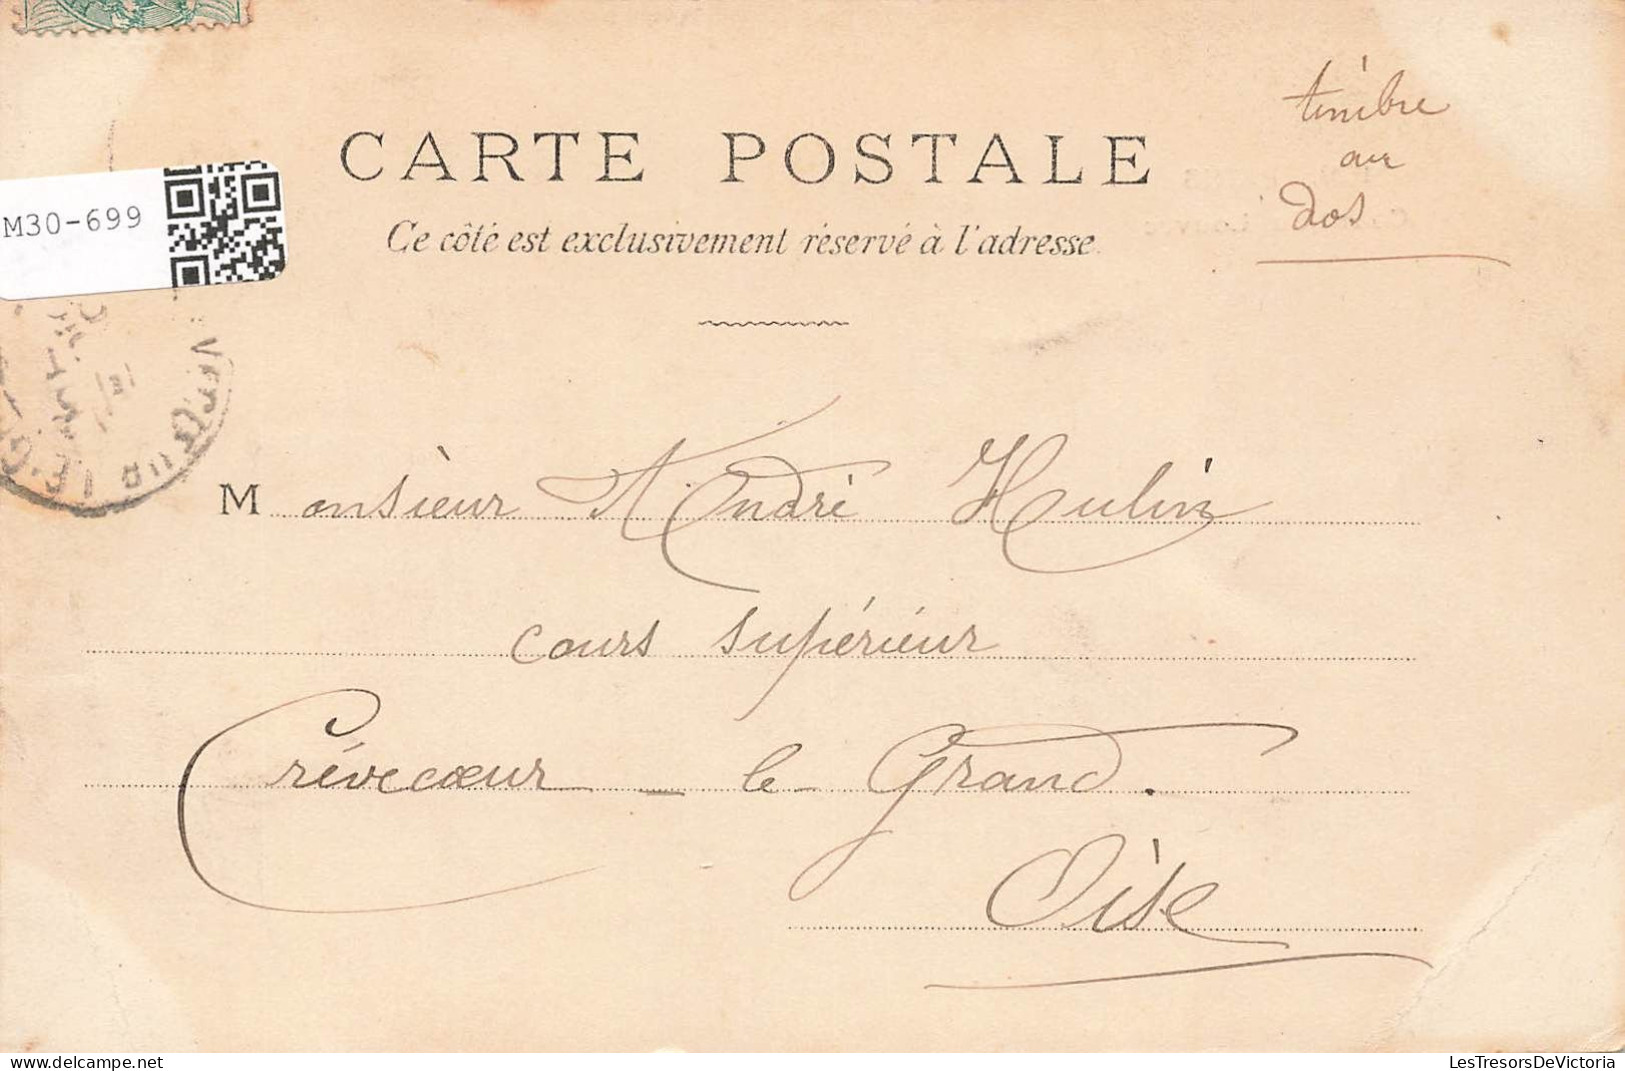 timbre
au
dos
CARTE POSTALE
Ce côté est exclusivement réservé à l'adresse.
M30-699
Monsieur André Hulin
cours supérieur
Crévecœur - le - Grand.
Oise
LesTresorsDeVictoria